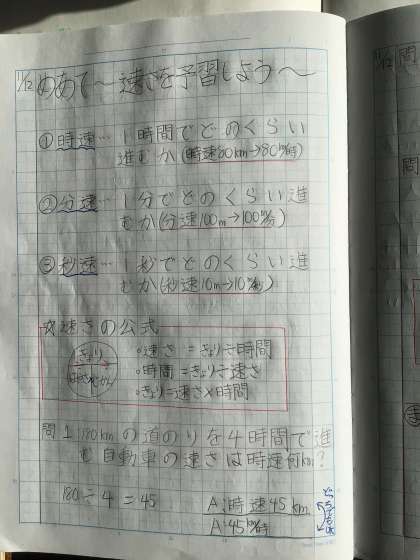 11/12
めあて～速さを予習しよう～
①時速…1時間でどのくらい
進むか(時速80km→80km/時)
②分速…1分でどのくらい進
むか(分速100m→100m/分)
③秒速…1秒でどのくらい進
むか(秒速10m→10m/秒)
☆速さの公式
きょり
はやさ じかん
・速さ=きょり÷時間
・時間=きょり÷速さ
・きょり=速さ×時間
問1 180kmの道のりを4時間で進
む自動車の速さは時速何km?
180÷4=45
A:時速45km
A:45km/時
どっちでもOK
11/12
問